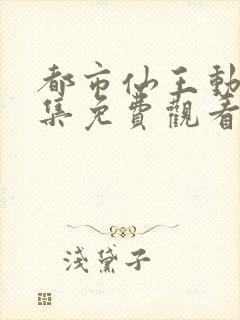 都市仙王動
集免費觀看
淺黛子